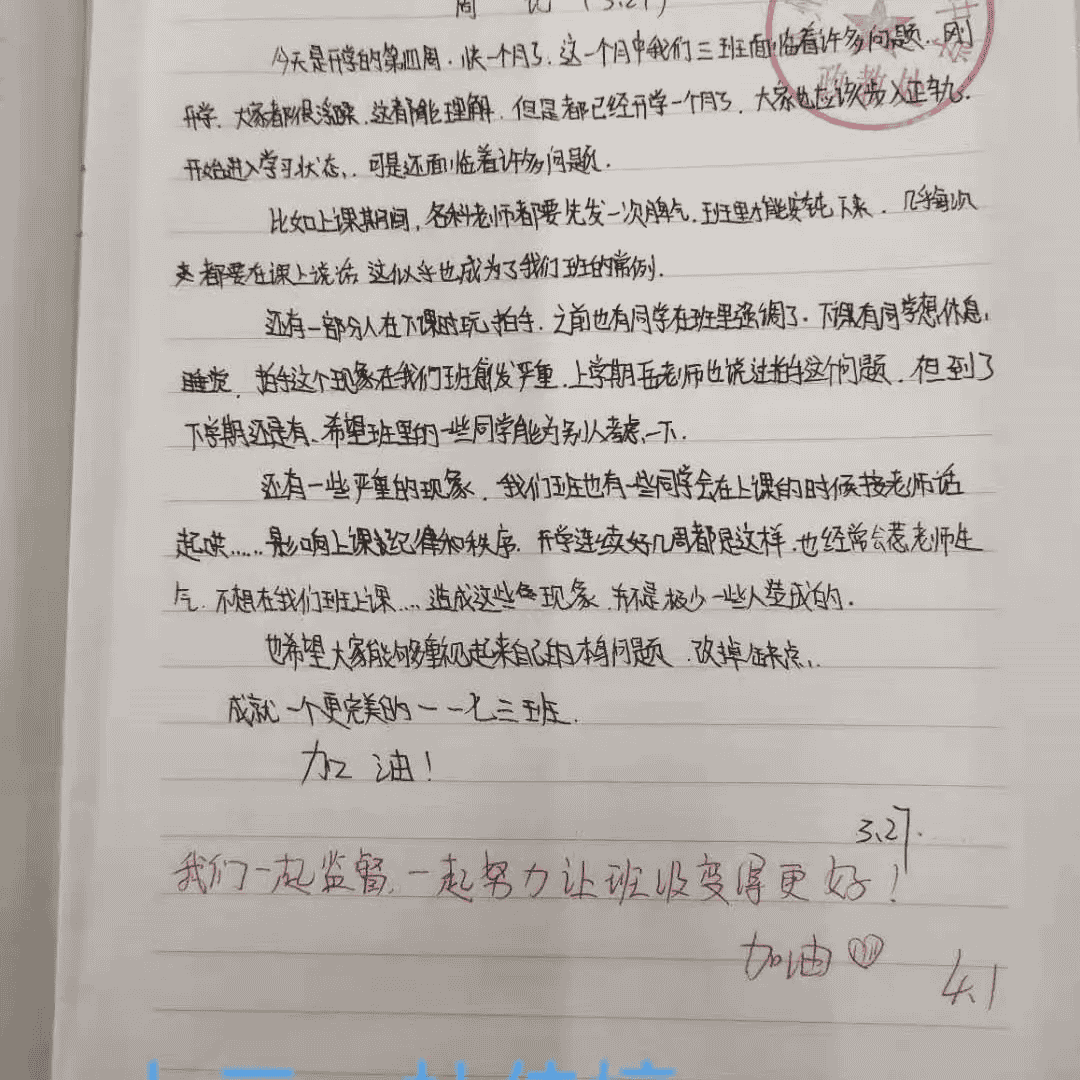 周 记 (3.27)
今天是开学的第四周.快一个月了.这一个月中我们三班面临着许多问题.刚
开学.大家都很浮躁.这都能理解.但是都已经开学一个月了.大家也应该步入正轨.
开始进入学习状态.可是还面临着许多问题.
比如上课期间,各科老师都要先发一次脾气.班里才能安钝下来.几乎每次
都要在课上说话.这似乎也成为了我们班的常例.
还有一部分人在下课时玩拍手.之前也有同学在班里强调了.下课有同学想休息,
睡觉.拍手这个现象在我们班愈发严重.上学期岳老师也说过拍手这个问题.但到了
下学期还是有、希望班里的一些同学能为别人考虑一下.
还有一些严重的现象.我们班也有一些同学会在上课的时候接老师话
起哄……影响上课纪律和秩序.开学连续好几周都是这样.也经常会惹老师生
气.不想在我们班上课....造成这些现象.并不是极少一些人造成的.
也希望大家能够重视起来自己的本身问题.改掉缺点.
成就一个更完美的一一七三班.
加油!
3.27.
我们一起监督,一起努力让班级变得更好!
加油
4.1
政教处